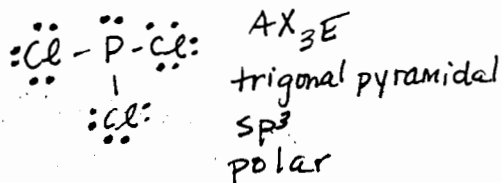 :Cl - P - Cl: AX₃E
trigonal pyramidal
:Cl: sp³
polar